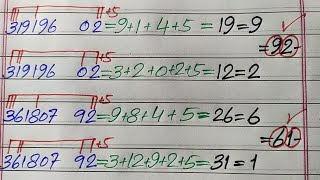 +5
319196 02=9+1+4+5=19=9
=92-
+5
319196 02=3+2+0+2+5=12=2
+5
361807 92=9+8+4+5=26=6
=61-
+5
361807 92=3+12+9+2+5=31=1